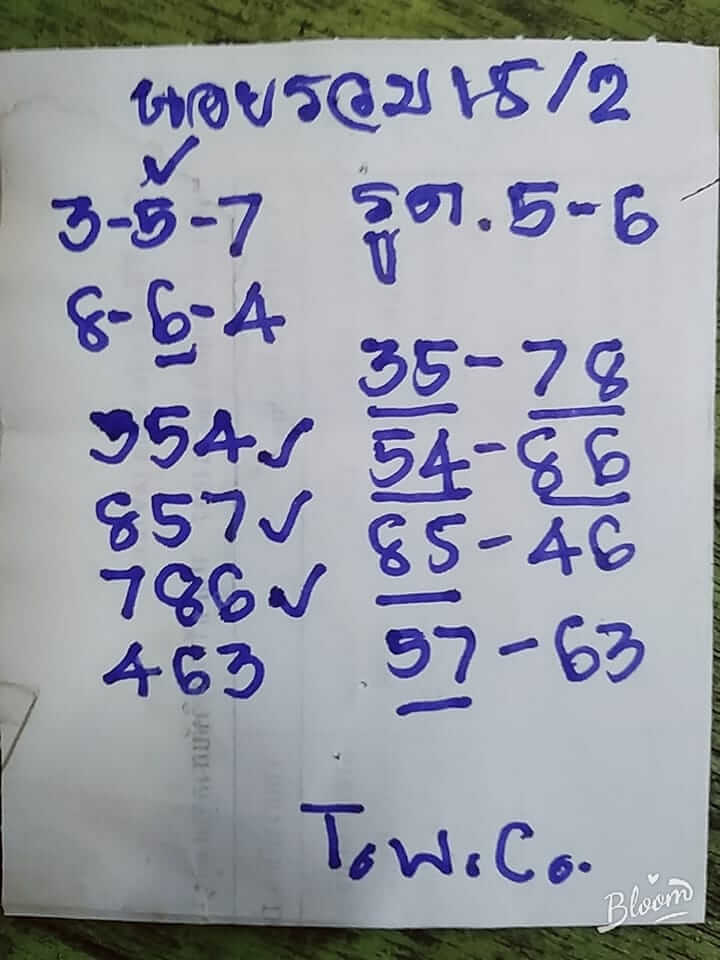 หอยรวม 15/2
3-5-7
8-6-4
รูด. 5-6
354✓
857✓
786✓
463
35-78
54-86
85-46
57-63
T.W.Co.
Bloom